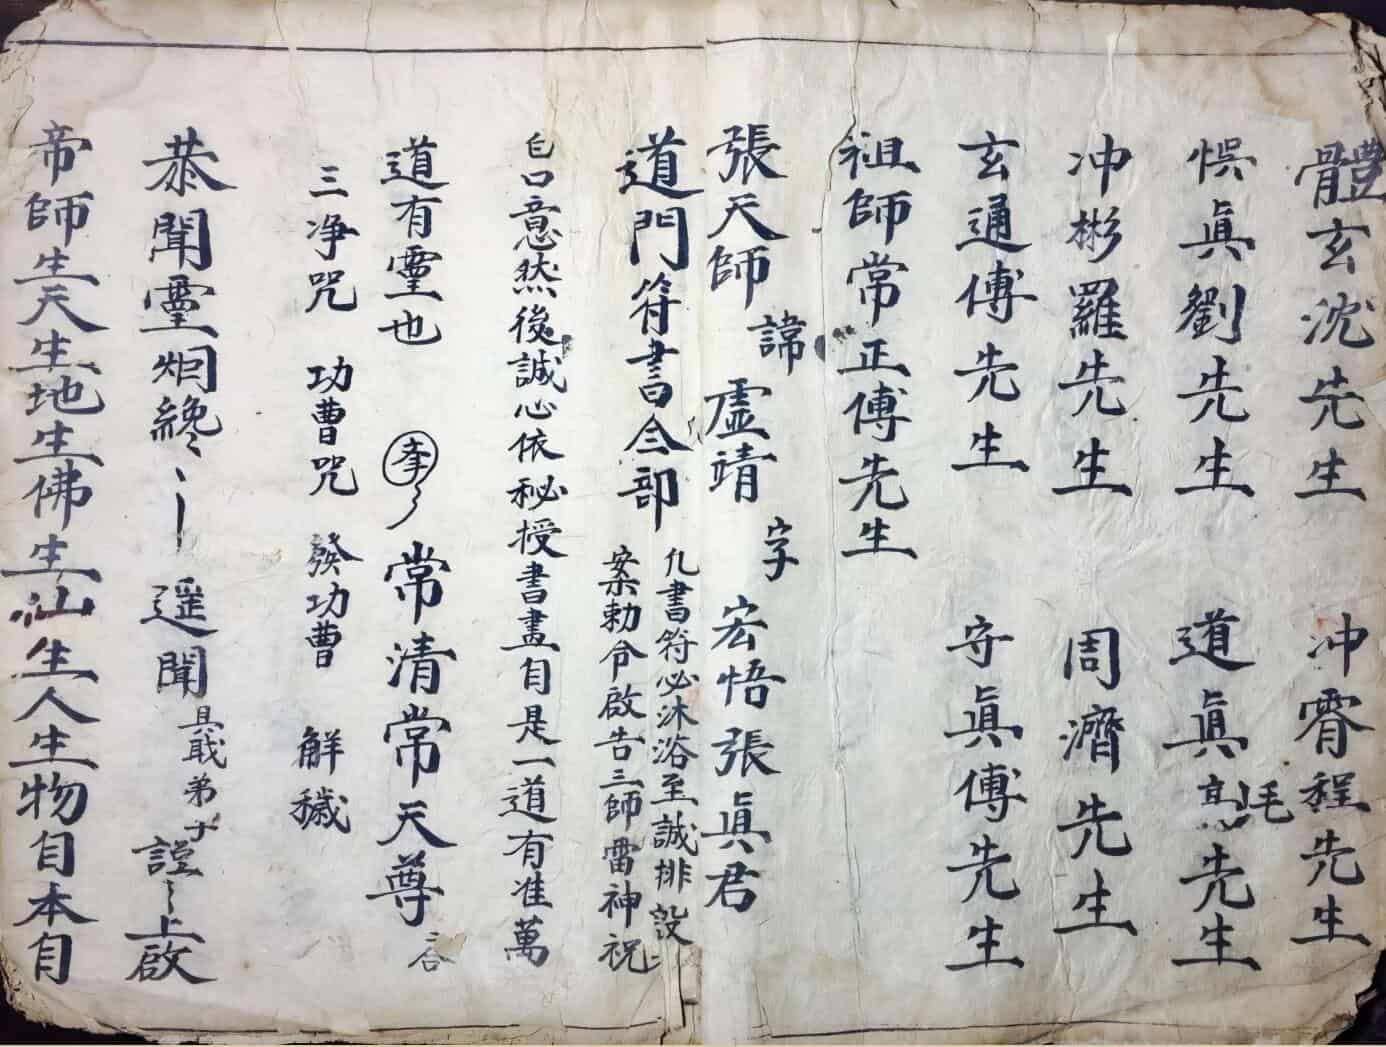 體玄沈先生　冲霄程先生
悞眞劉先生　道眞髙先生
冲彬羅先生　周濟先生
玄通傅先生　守眞傅先生
祖師常正傅先生
張天師諱虛靖字宏悟張眞君
道門符書仝部
凢書符必沐浴至誠排設
案勅令啟告三師雷神祝
口意然後誠心依秘授書畫自是一道有准萬
道有靈也　奉　常清常天尊
三净咒　功曹咒　發功曹　解穢
恭聞靈烟纔　遥聞具戠弟子謹上啟
帝師生天生地生佛生仙生人生物自本自